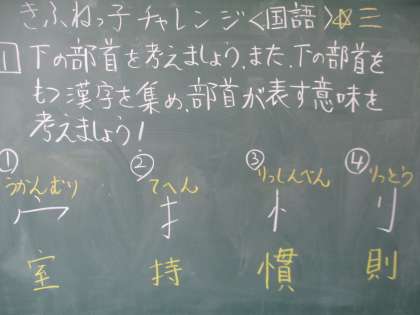 きふねっ子チャレンジ〈国語〉☆三
1 下の部首を考えましょう。また、下の部首を
もつ漢字を集め、部首が表す意味を
考えましょう!
① ② ③ ④
うかんむり てへん りっしんべん りっとう
宀 扌 忄 刂
室 持 慣 則